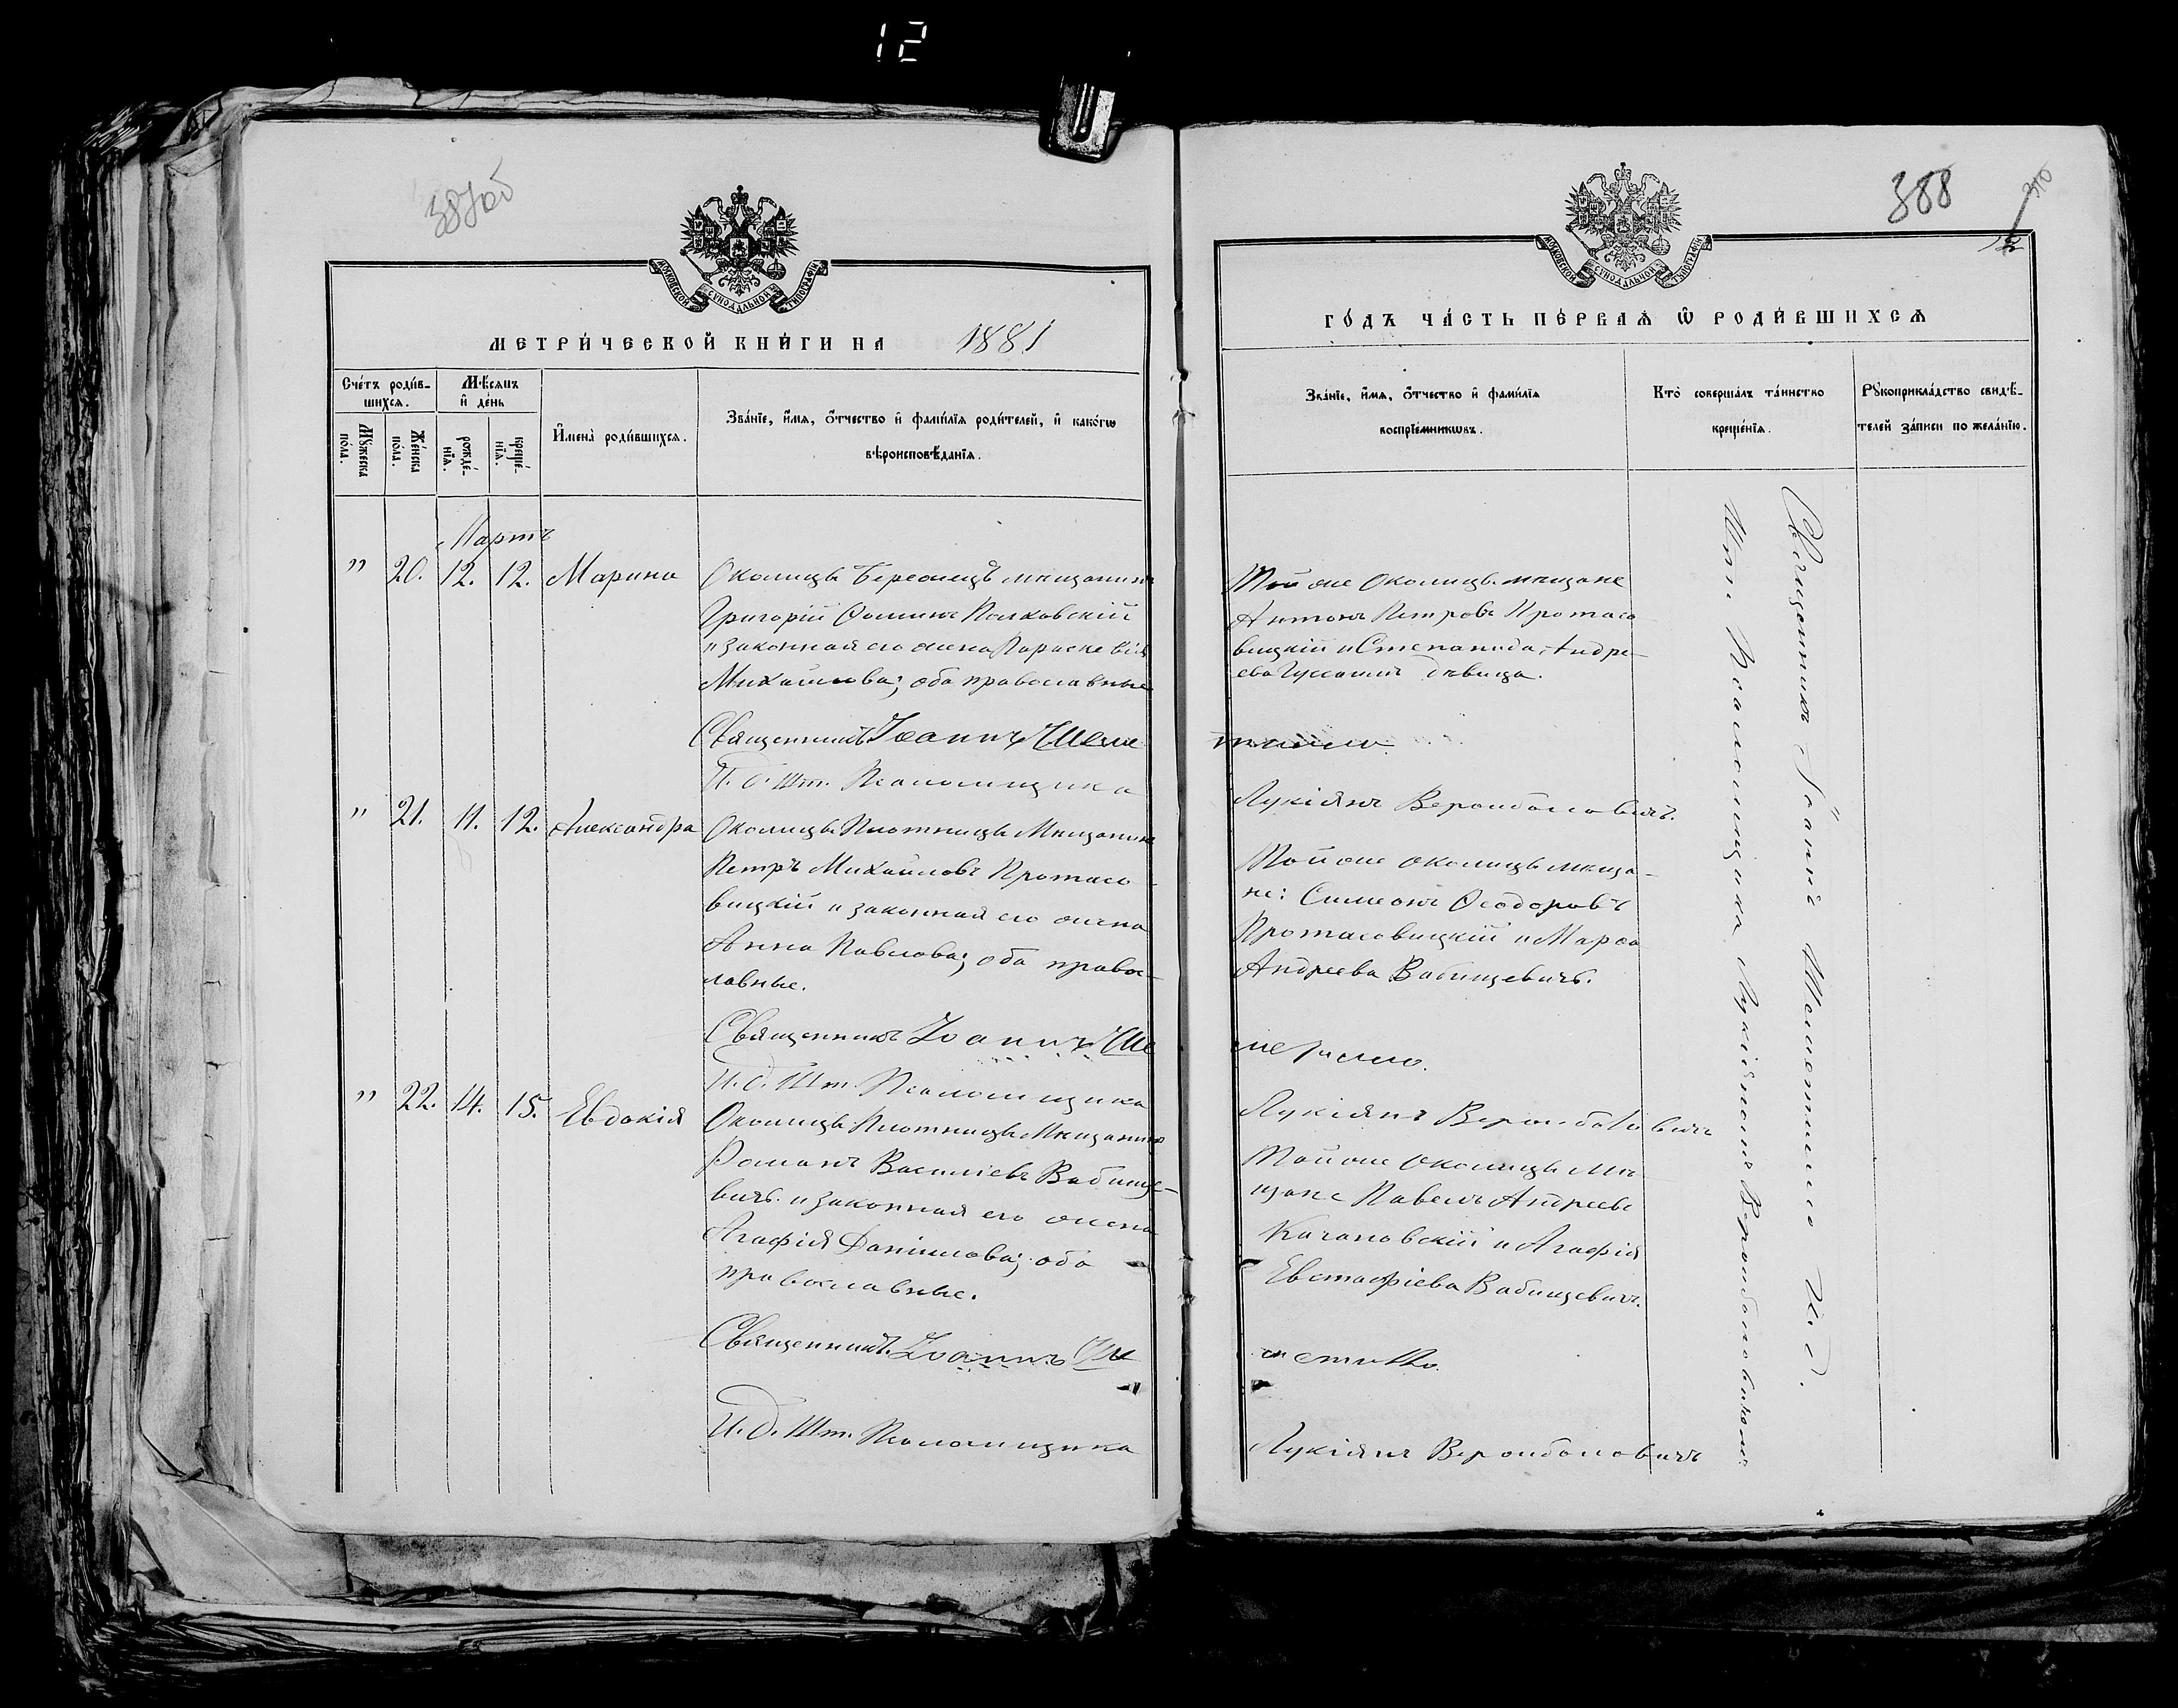 12
387об
МОСКОВСКОЙ СУНОДАЛЬНОЙ ТИПОГРАФІИ
МЕТРИ́ЧЕСКОЙ КНИ́ГИ НА 1881
Сче́тъ роди́в-
шихсѧ.
Мѣ́сѧцъ
и҆ де́нь
Мꙋ́жеска
по́ла.
Же́нска
по́ла.
рожде́-
нїѧ.
креще́-
нїѧ.
И҆мена̀ роди́вшихсѧ.
Зва́нїе, и҆́мѧ, ѻ҆́тчество и҆ фами́лїѧ роди́телей, и҆ како́гѡ
вѣроисповѣ́данїѧ.
Мартъ
" 20. 12. 12. Марина
Околицы Бережецъ мѣщанинъ
Григорій Фоминъ Полховскій
и законная его жена Параскевія
Михайлова; оба православные
Священникъ Іоаннъ Шеме
И. д. Шт. Псаломщика
" 21. 11. 12. Александра
Околицы Плотницы Мѣщанинъ
Петръ Михайловъ Протасо
вицкій и законная его жена
Анна Павлова; оба право-
славные.
Священникъ Іоаннъ Ше
И. д. Шт. Псаломщика
" 22. 14. 15. Евдокія
Околицы Плотницы Мѣщанинъ
Романъ Василіевъ Вабище-
вичъ и законная его жена
Агафія Даніилова; оба
православные.
Священникъ Іоаннъ Ше
И. д. Шт. Псаломщика
388
МОСКОВСКОЙ СУНОДАЛЬНОЙ ТИПОГРАФІИ
ГО́ДЪ ЧА́СТЬ ПЕ́РВАѦ Ѽ РОДИ́ВШИХСѦ
Зва́нїе, и҆́мѧ, ѻ҆́тчество и҆ фами́лїѧ
воспрїе́мникѡвъ.
Кто̀ соверша́лъ та́инство
креще́нїѧ.
Рꙋкоприкла́дство свидѣ́-
телей за́писи по жела́нїю.
Той же Околицы мѣщане
Антонъ Петровъ Протасо
вицкій и Степанида Андре-
ева дѣвица.
тилло
Лукіянъ Вероиболовичъ.
Той же околицы мѣща-
не: Симеонъ Ѳеодоровъ
Протасовицкій и Марѳа
Андреева Вабищевичъ.
метилло.
Лукіянъ Вероиболовичъ
Той же околицы Мѣ
щане Павелъ Андреевъ
Качановскій и Агафія
Евстафіева Вабищевичъ.
метилло.
Лукіянъ Вероиболовичъ
Священникъ Іоаннъ Шеметилло И. д.
Шт. Псаломщика Лукіяномъ Вероиболовичемъ